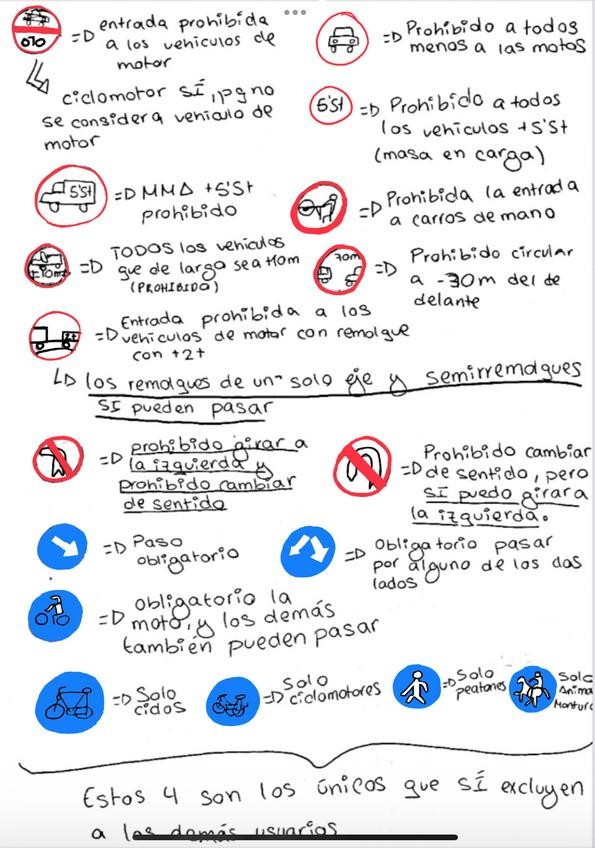 =D entrada prohibida
a los vehiculos de
motor
ciclomotor SÍ, pq no
se considera vehiculo de
motor
=D Prohibido a todos
menos a las motos
5'5t =D Prohibido a todos
los vehiculos +5'5t
(masa en carga)
5'5t =D MMA +5'5t
prohibido
=D Prohibida la entrada
a carros de mano
=D TODOS los vehiculos
que de largo sea +10m
(PROHIBIDO)
70m =D Prohibido circular
a -70m del de
delante
=D Entrada prohibida a los
vehiculos de motor con remolque
con +2t
LD los remolques de un solo eje y semirremolques
SI pueden pasar
=D prohibido girar a
la izquierda y
prohibido cambiar
de sentido
=D Prohibido cambiar
de sentido, pero
SÍ puedo girar a
la izquierda.
=D Paso
obligatorio
=D Obligatorio pasar
por alguno de los dos
lados
=D obligatorio la
moto, y los demás
también pueden pasar
=D Solo
ciclos
=D Solo
ciclomotores
=D Solo
peatones
Solo
Anima
Montura
Estos 4 son los únicos que SÍ excluyen
a los demás usuarios